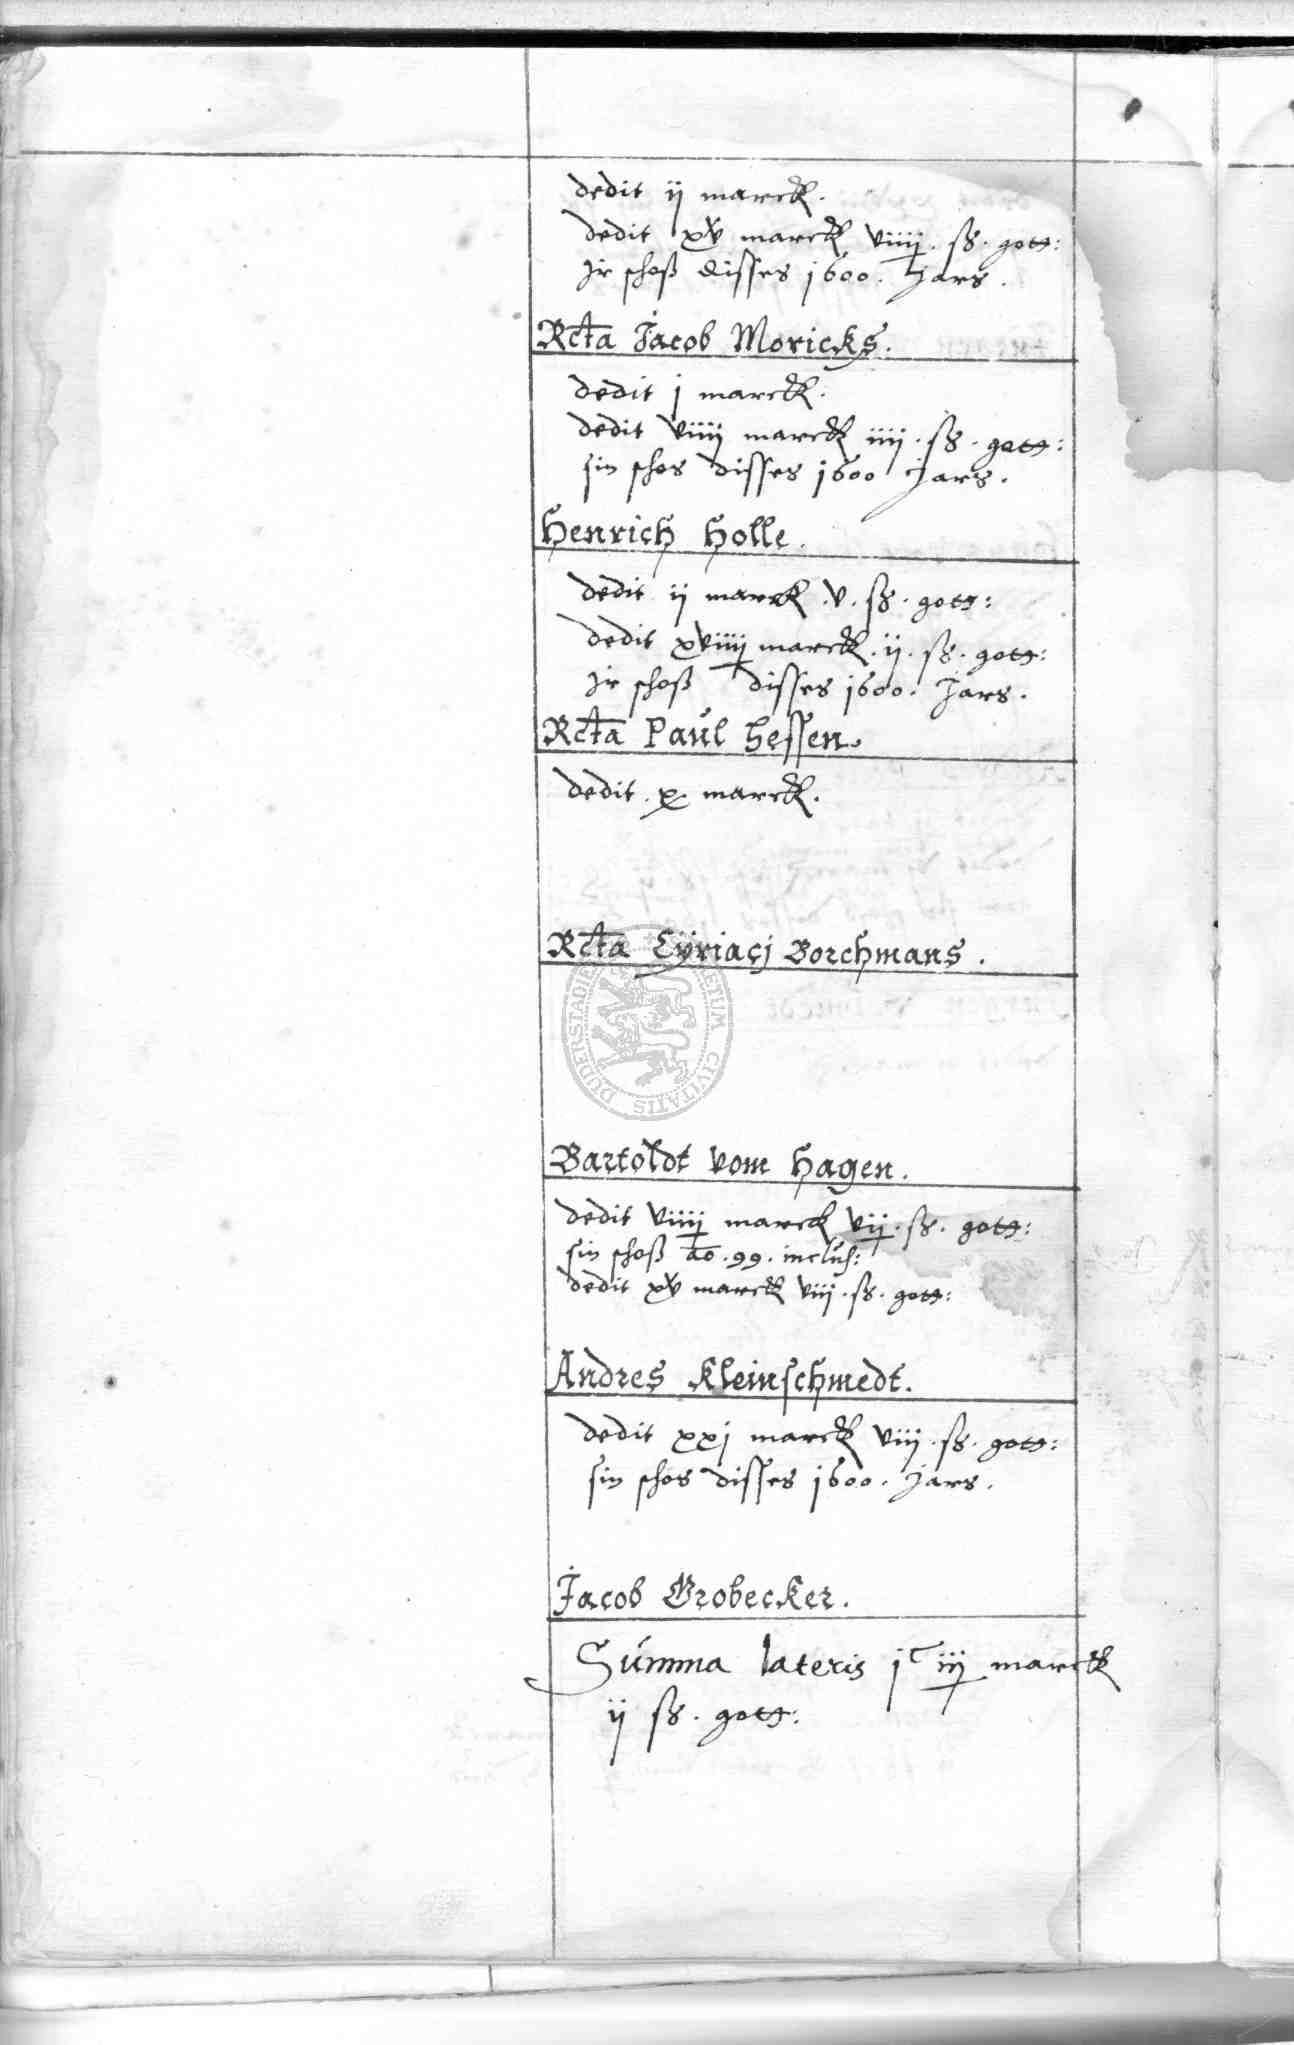 dedit ij marck.
dedit xv marck viiij. ß. gott:
Jr schoß disses 1600. Jars.
Rcta Jacob Moricks.
dedit j marck.
dedit viiij marck iiij. ß. gott:
sin schos disses 1600 Jars.
Henrich Holle.
dedit ij marck .v. ß. gott:
dedit xviiij marck. ij. ß. gott:
Jr schoß disses 1600. Jars.
Rcta Paül Hessen.
dedit .x. marck.
Rcta Cÿriacj Borchmans.
DUDERSTADIE
ETUM CIVITATIS
Bartoldt vom Hagen.
dedit viiij marck vij. ß. gott:
sin schoß ao. 99. inclus:
dedit xv marck viij. ß. gott:
Andres Kleinschmedt.
dedit xxj marck viij. ß. gott:
sin schos disses 1600. Jars.
Jacob Grobecker.
Summa lateris jc iij marck
ij ß. gott: